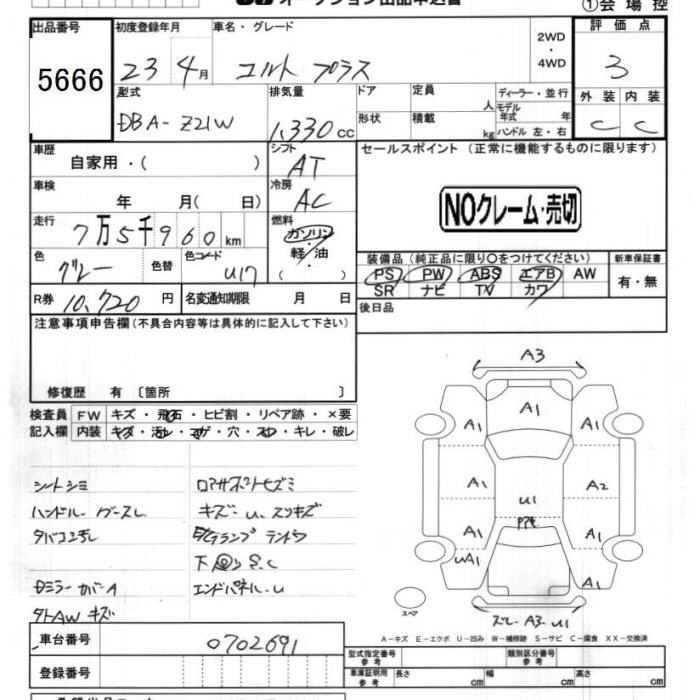 オークション出品申込書
①会場控
出品番号 初度登録年月 車名・グレード 2WD・4WD 評価点
5666 23 4月 コルト プラス 3
型式 排気量 ドア 定員 人 ディーラー・並行 外装 内装
DBA-Z21W 1,330cc 形状 積載 kg モデル年式 年 ハンドル 左・右 C C
車歴 シフト セールスポイント(正常に機能するものに限ります)
自家用・( ) AT
車検 冷房
年 月( 日) AC NOクレーム・売切
走行 燃料
7万5千960km ガソリン・軽油
色 色替 色コード ( ) 装備品(純正品に限り○をつけてください) 新車保証書
グレー U17 PS PW ABS エアB AW 有・無
R券 10,720円 名変通知期限 月 日 SR ナビ TV カワ
注意事項申告欄(不具合内容等は具体的に記入して下さい) 後日品
修復歴 有〔箇所 〕
検査員 FW キズ・飛石・ヒビ割・リペア跡・×要
記入欄 内装 キズ・汚レ・コゲ・穴・スレ・キレ・破レ
シートシミ
ハンドル
Dミラーカバー A
タトAW キズ
キズ
エンドパネル-U
A3
A1
A1 A1
A1 U1 A2
A1 A1
UA1 A1
スペア
A3 U1
A-キズ E-エクボ U-凹み W-補修跡 S-サビ C-腐食 XX-交換済
車台番号 0702691
登録番号
型式指定番号 参考 類別区分番号 参考
車庫証明用 参考 長さ cm 幅 cm 高さ cm